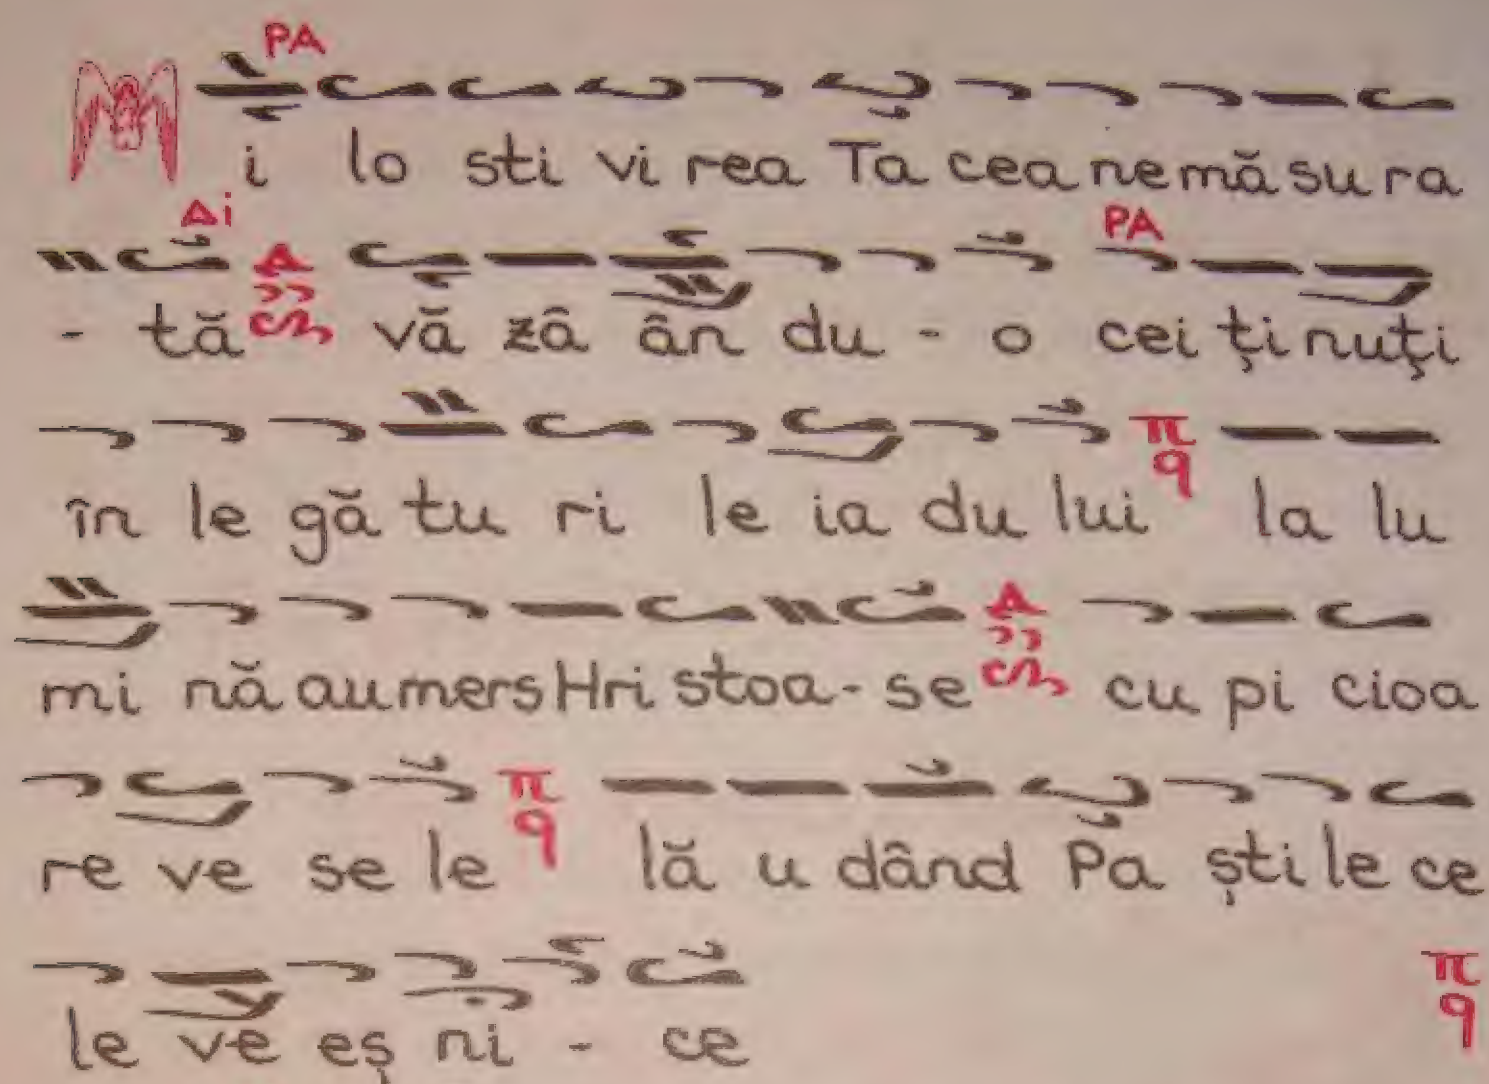 PA
Milostivirea Ta cea nemăsura
Δi
PA
- tă Δ văzâ ân du - o cei ţinuţi
în le gă tu ri le ia du lui π q la lu
mi nă au mers Hristoa - se Δ cu pi cioa
re ve se le π q lă u dând Paştile ce
le ve eş ni - ce π q